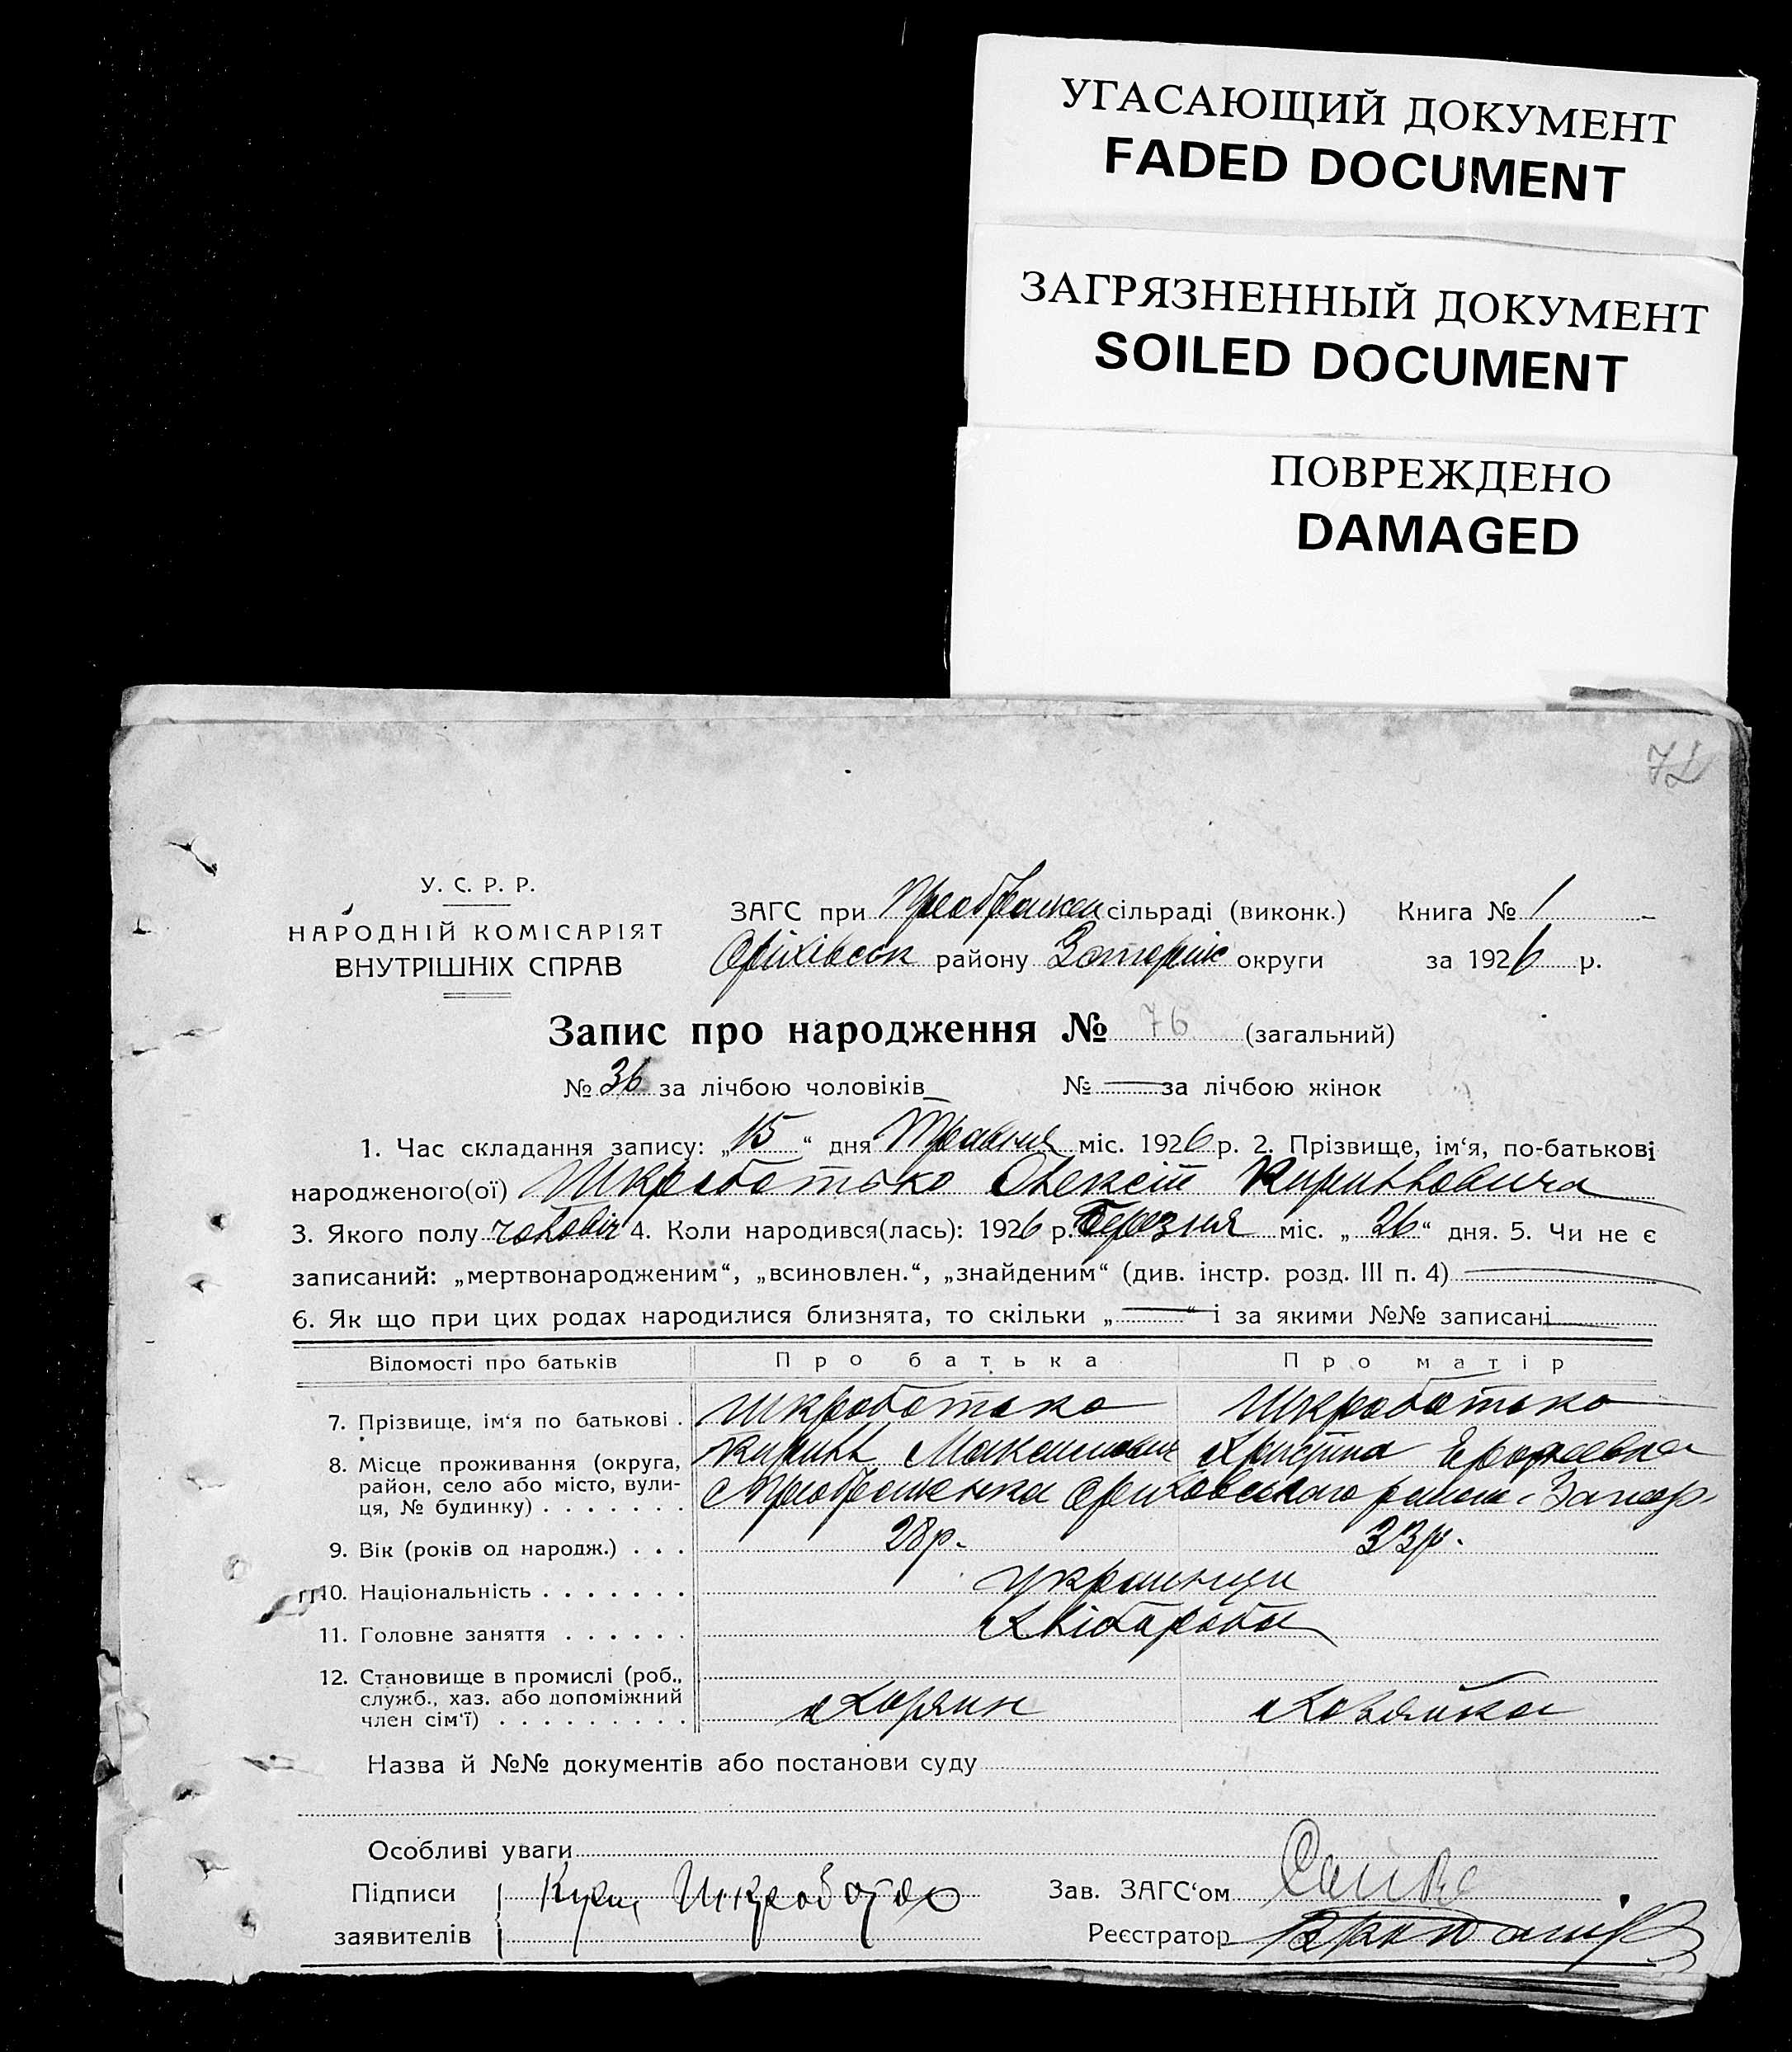 УГАСАЮЩИЙ ДОКУМЕНТ
FADED DOCUMENT
ЗАГРЯЗНЕННЫЙ ДОКУМЕНТ
SOILED DOCUMENT
ПОВРЕЖДЕНО
DAMAGED
У. С. Р. Р.
НАРОДНІЙ КОМІСАРІЯТ
ВНУТРІШНІХ СПРАВ
ЗАГС при Преображен сільраді (виконк.) Книга № 1
Оріхівськ району Запоріж округи за 1926 р.
Запис про народження № 76 (загальний)
№ 36 за лічбою чоловіків № — за лічбою жінок
1. Час складання запису: „15“ дня Травня міс. 1926 р. 2. Прізвище, ім‘я, по-батькові
народженого(ої) Шкработько Олексій Кирилович
3. Якого полу чоловіч 4. Коли народився(лась): 1926 р. Березня міс. „26“ дня. 5. Чи не є
записаний: „мертвонародженим“, „всиновлен.“, „знайденим“ (див. інстр. розд. III п. 4)
6. Як що при цих родах народилися близнята, то скільки „—“ і за якими №№ записані
Відомості про батьків Про батька Про матір
7. Прізвище, ім‘я по батькові . Шкработько Шкработько
Кирилл Максимович Христина
8. Місце проживання (округа, район, село або місто, вулиця, № будинку) . . . . . . . Преображенка Ориховского району Запор
9. Вік (років од народж.) . . . 28р. 33р.
10. Національність . . . . . . . украинци
11. Головне заняття . . . . . . Хлібороби
12. Становище в промислі (роб., служб., хаз. або допоміжний член сім‘ї) . . . . . . . . . Хозяин Хозяйка
Назва й №№ документів або постанови суду
Особливі уваги
Підписи заявителів Кири Шкработко
Зав. ЗАГС‘ом
Реєстратор